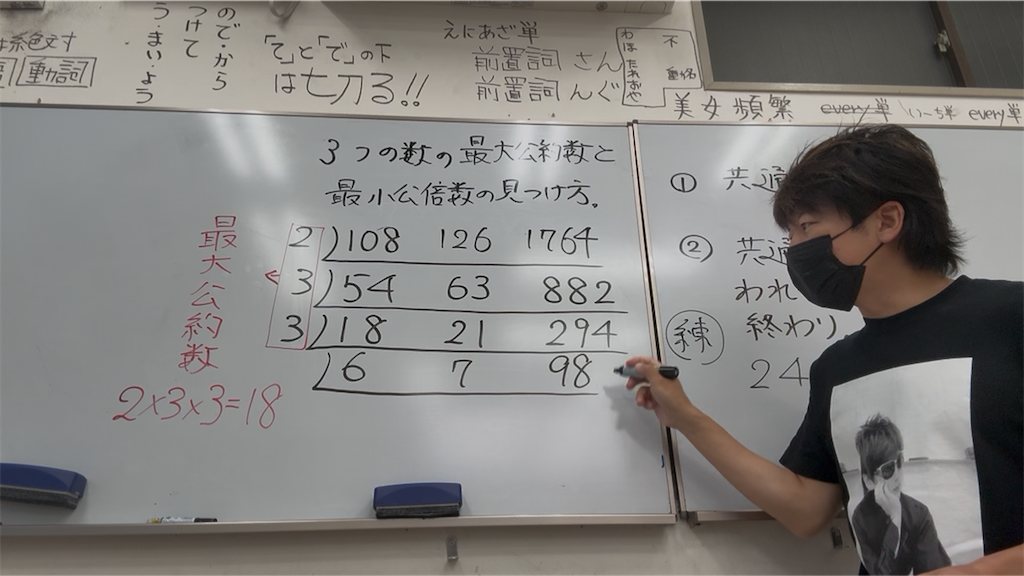 ので・から
つけて
う・まい・よう
は絶対
動詞
「て」と「で」の下
は七刀る!!
えにあざ単
前置詞 さん
前置詞 んぐ
不
美女頻繁 every単 い〜ち単 every単
3つの数の最大公約数と
最小公倍数の見つけ方。
2)108 126 1764
3)54 63 882
3)18 21 294
)6 7 98
最大公約数
2×3×3=18
① 共通
② 共通
われ
終わり
練 24